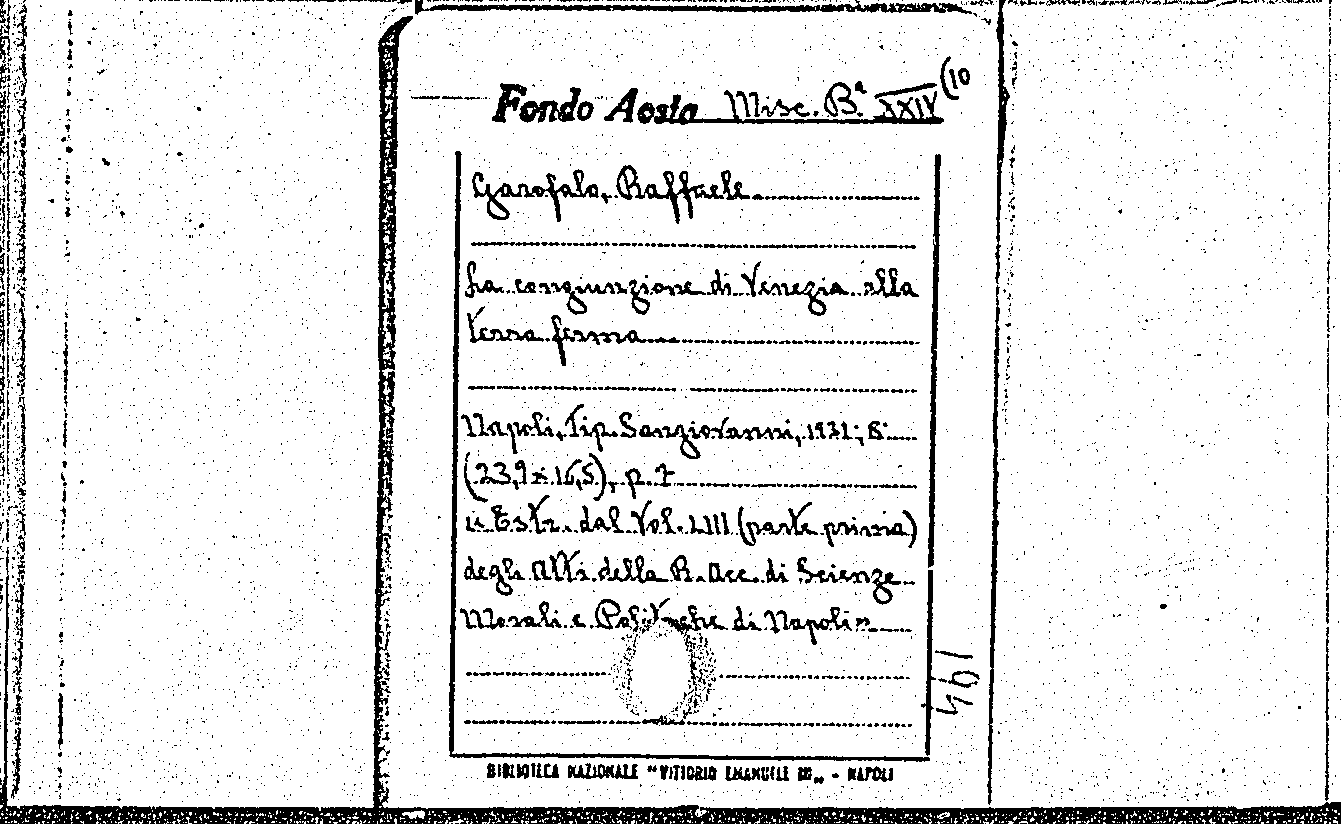 Fondo Aosta Misc. B.ª XXIV (10
Garofalo, Raffaele
La congiunzione di Venezia alla
terra ferma
Napoli, Tip. Sangiovanni, 1931; 8°
(23,9 x 16,5), p. 7
"Estr. dal Vol. LIII (parte prima)
degli Atti della R. Acc. di Scienze
Morali e Politiche di Napoli"
194
BIBLIOTECA NAZIONALE "VITTORIO EMANUELE III„ - NAPOLI